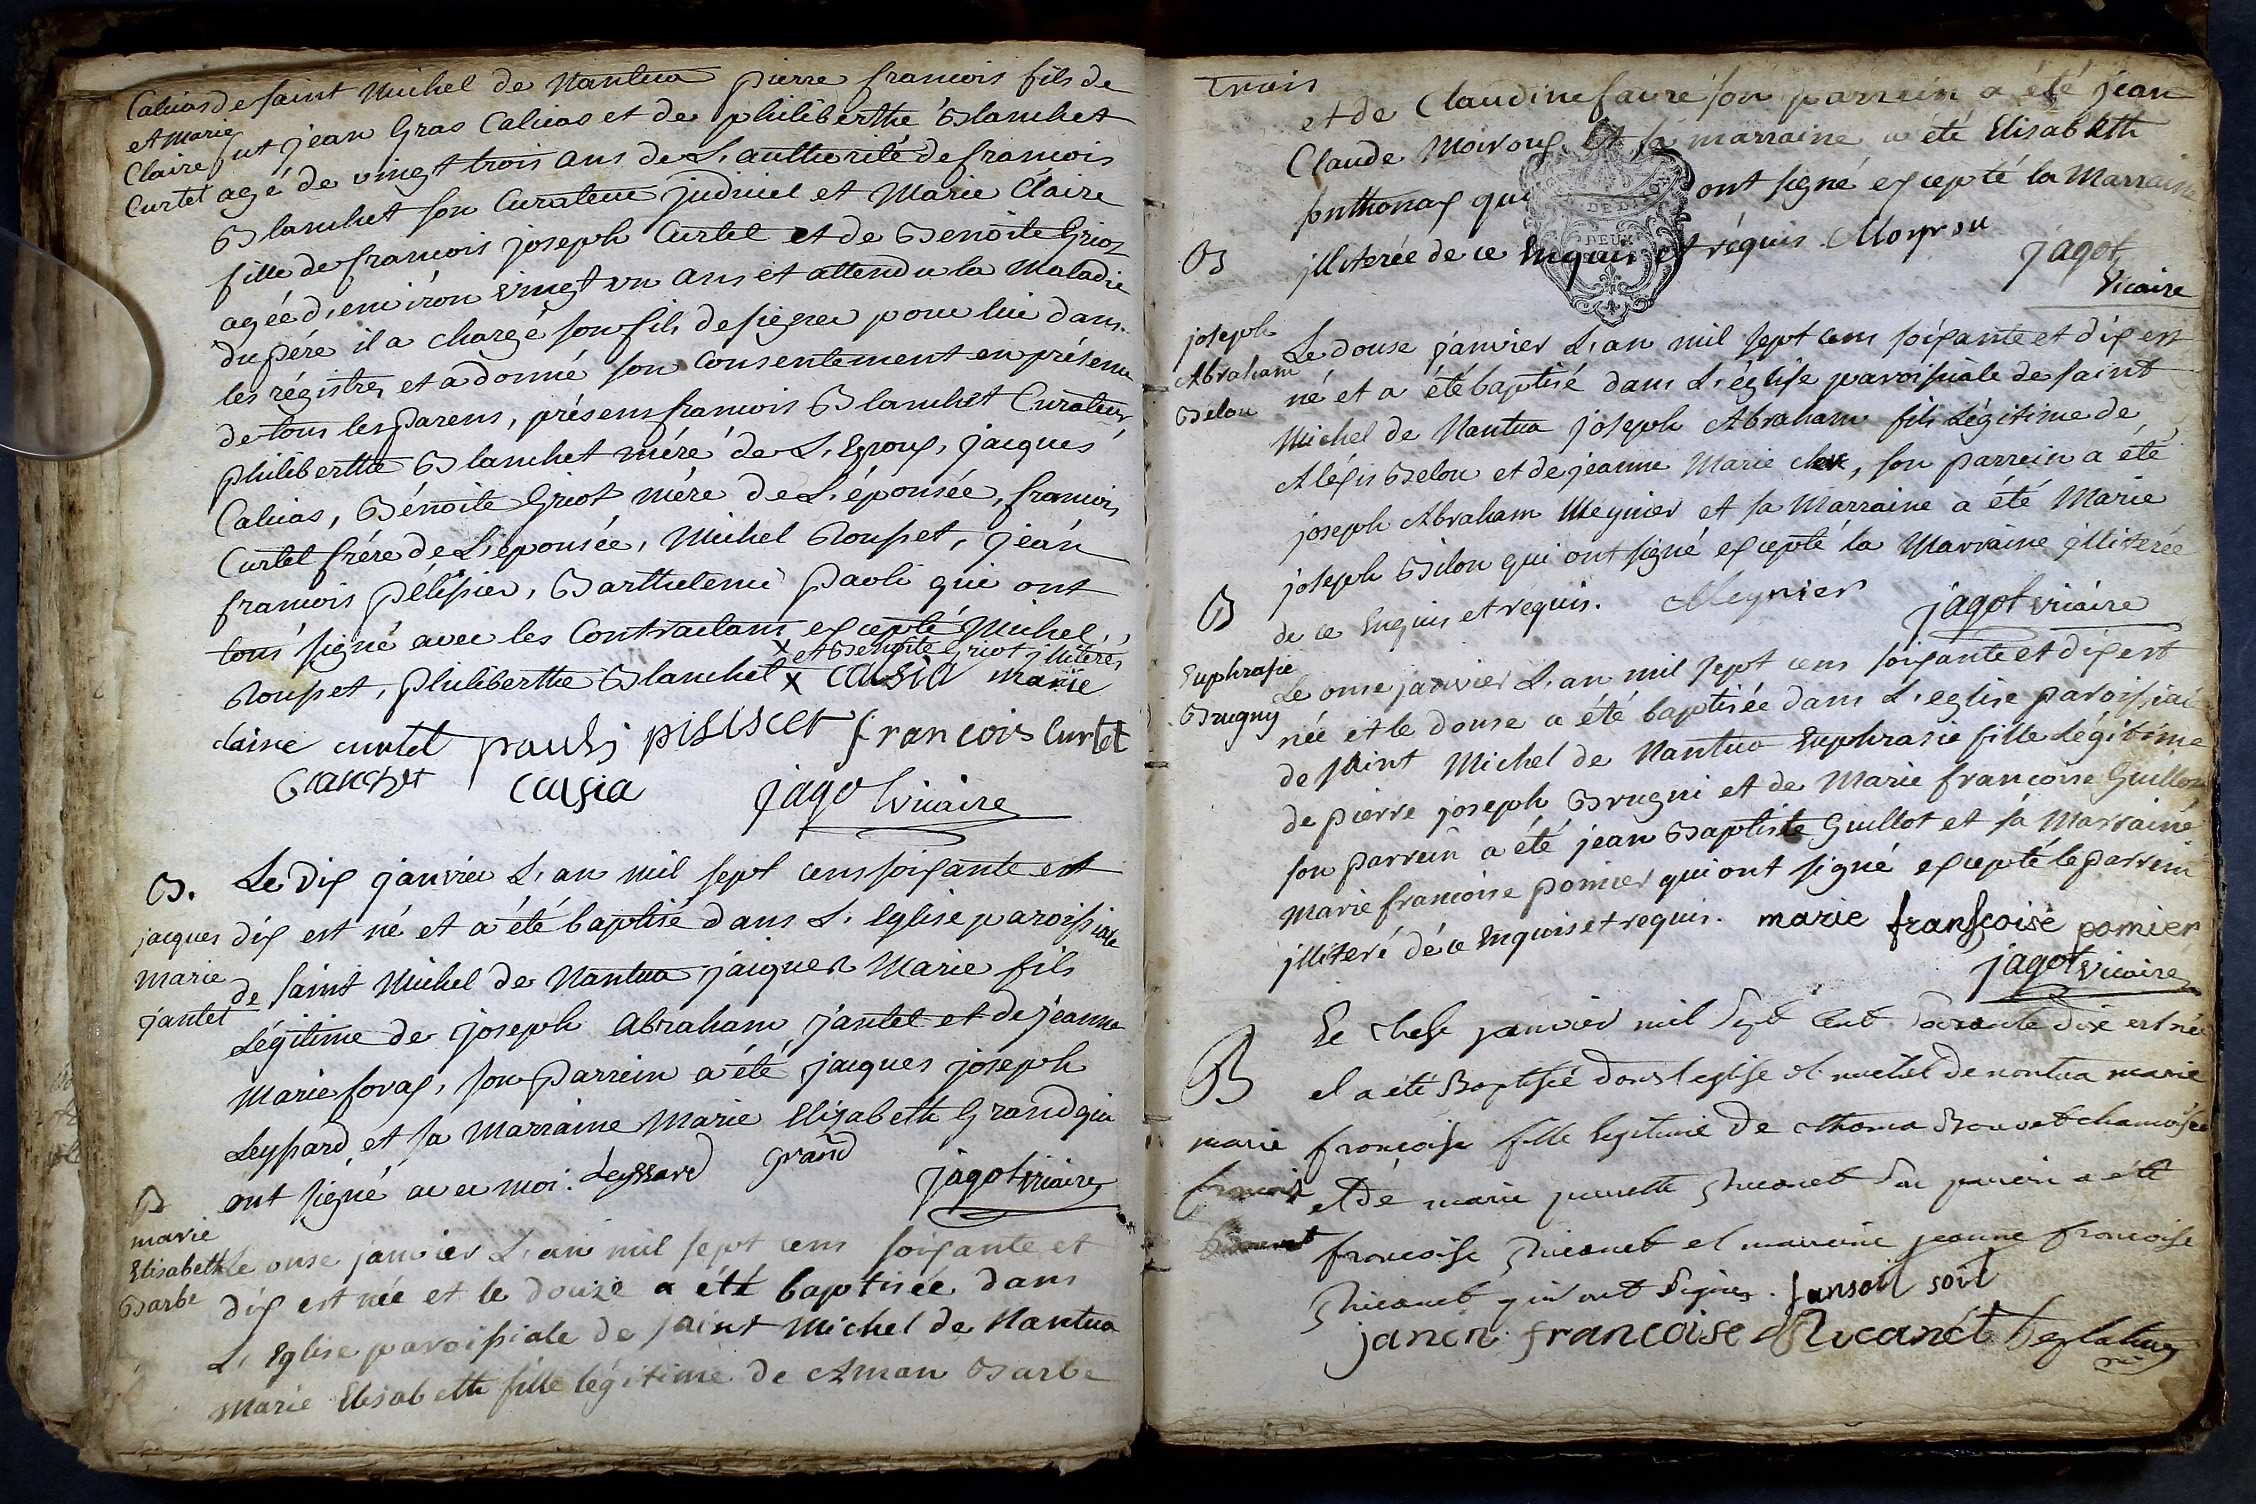 Calcias de saint Michel de Nantua pierre francois fils de
et Marie
Claire fut jean Gras Calcias et de philiberthe Blanchet
Curtet agé de vingt trois ans de L'authorité de francois
Blanchet son Curateur judiciel et Marie Claire
fille de francois joseph Curtet et de Benoite Griot
agée d'environ vingt un ans et attendu la Maladie
du pére il a chargé son fils de signer pour lui dans
les régistres et a donné son Consentement en présence
de tous les Parens, présens francois Blanchet Curateur
philiberthe Blanchet mére de L'Epoux, jacques
Calcias, Bénoite Griot mére de L'épousée, francois
Curtet frére de L'epousée, Michel Rousset, jean
francois pélissier, Barthelemi paoli qui ont
tous signé avec les Contractans excepté Michel
x et Benoite Griot illiterés
Rousset, philiberthe Blanchet x calsia marie
claire curtet paulj francois Curtet
Blanchet calsia jagot vicaire
B. Le Dix janvier L'an mil sept cens soixante et
jacques dix est né et a été baptisé dans L'Eglise paroissiale
marie de saint Michel de Nantua jacques Marie fils
jantet Légitime de joseph Abraham jantet et de jeanne
Marie foras, son Parrein a été jacques joseph
Leyssard et sa Marraine Marie Elisabeth Grand qui
ont signé avec moi. Leyssard grand jagot vicaire
B
marie
Elisabeth Le onse janvier L'an mil sept cens soixante et
Barbe dix est née et le douze a été baptisée dans
L'Eglise paroissiale de saint Michel de Nantua
Marie Elisabeth fille légitime de Aman Barbe
Trois
et de Claudine faure son parrein a été jean
Claude Moiroux et sa marraine a été Elisabeth
ponthonax qui ont signé excepté la Marraine
B illiterée de ce Enquis et réquis. Moyrou jagot
Vicaire
joseph Le douse janvier L'an mil sept cens soixante et dix est
Abraham né et a été baptisé dans L'église paroissiale de saint
Belou Michel de Nantua joseph Abraham fils Légitime de
Aléxis Belou et de jeanne Marie, son parrein a été
joseph Abraham Meynier et sa Marraine a été Marie
joseph Bilou qui ont signé excepté la Marraine illiterée
B de ce Enquis et requis. Meynier jagot vicaire
Euphrasie Le onse janvier L'an mil sept cens soixante et dix est
Brugny née et le douse a été baptisée dans L'eglise paroissiale
de saint Michel de Nantua Euphrasie fille Légitime
de pierre joseph Brugni et de Marie francoise Guillot
son parrein a été jean Baptiste Guillot et sa Marraine
Marie francoise pomier qui ont signé excepté le parrein
illiteré de ce Enquis et requis. marie franscoise pomier
jagot vicaire
Le janvier mil sept cent soixante dix est née
B et a été Baptisée dans l'eglise st michel de nantua marie
marie francoise fille legitime de thoma Bouvet
francoise et de marie son parrein a été
francoise et marraine jeanne francoise
qui ont signes.
francoise